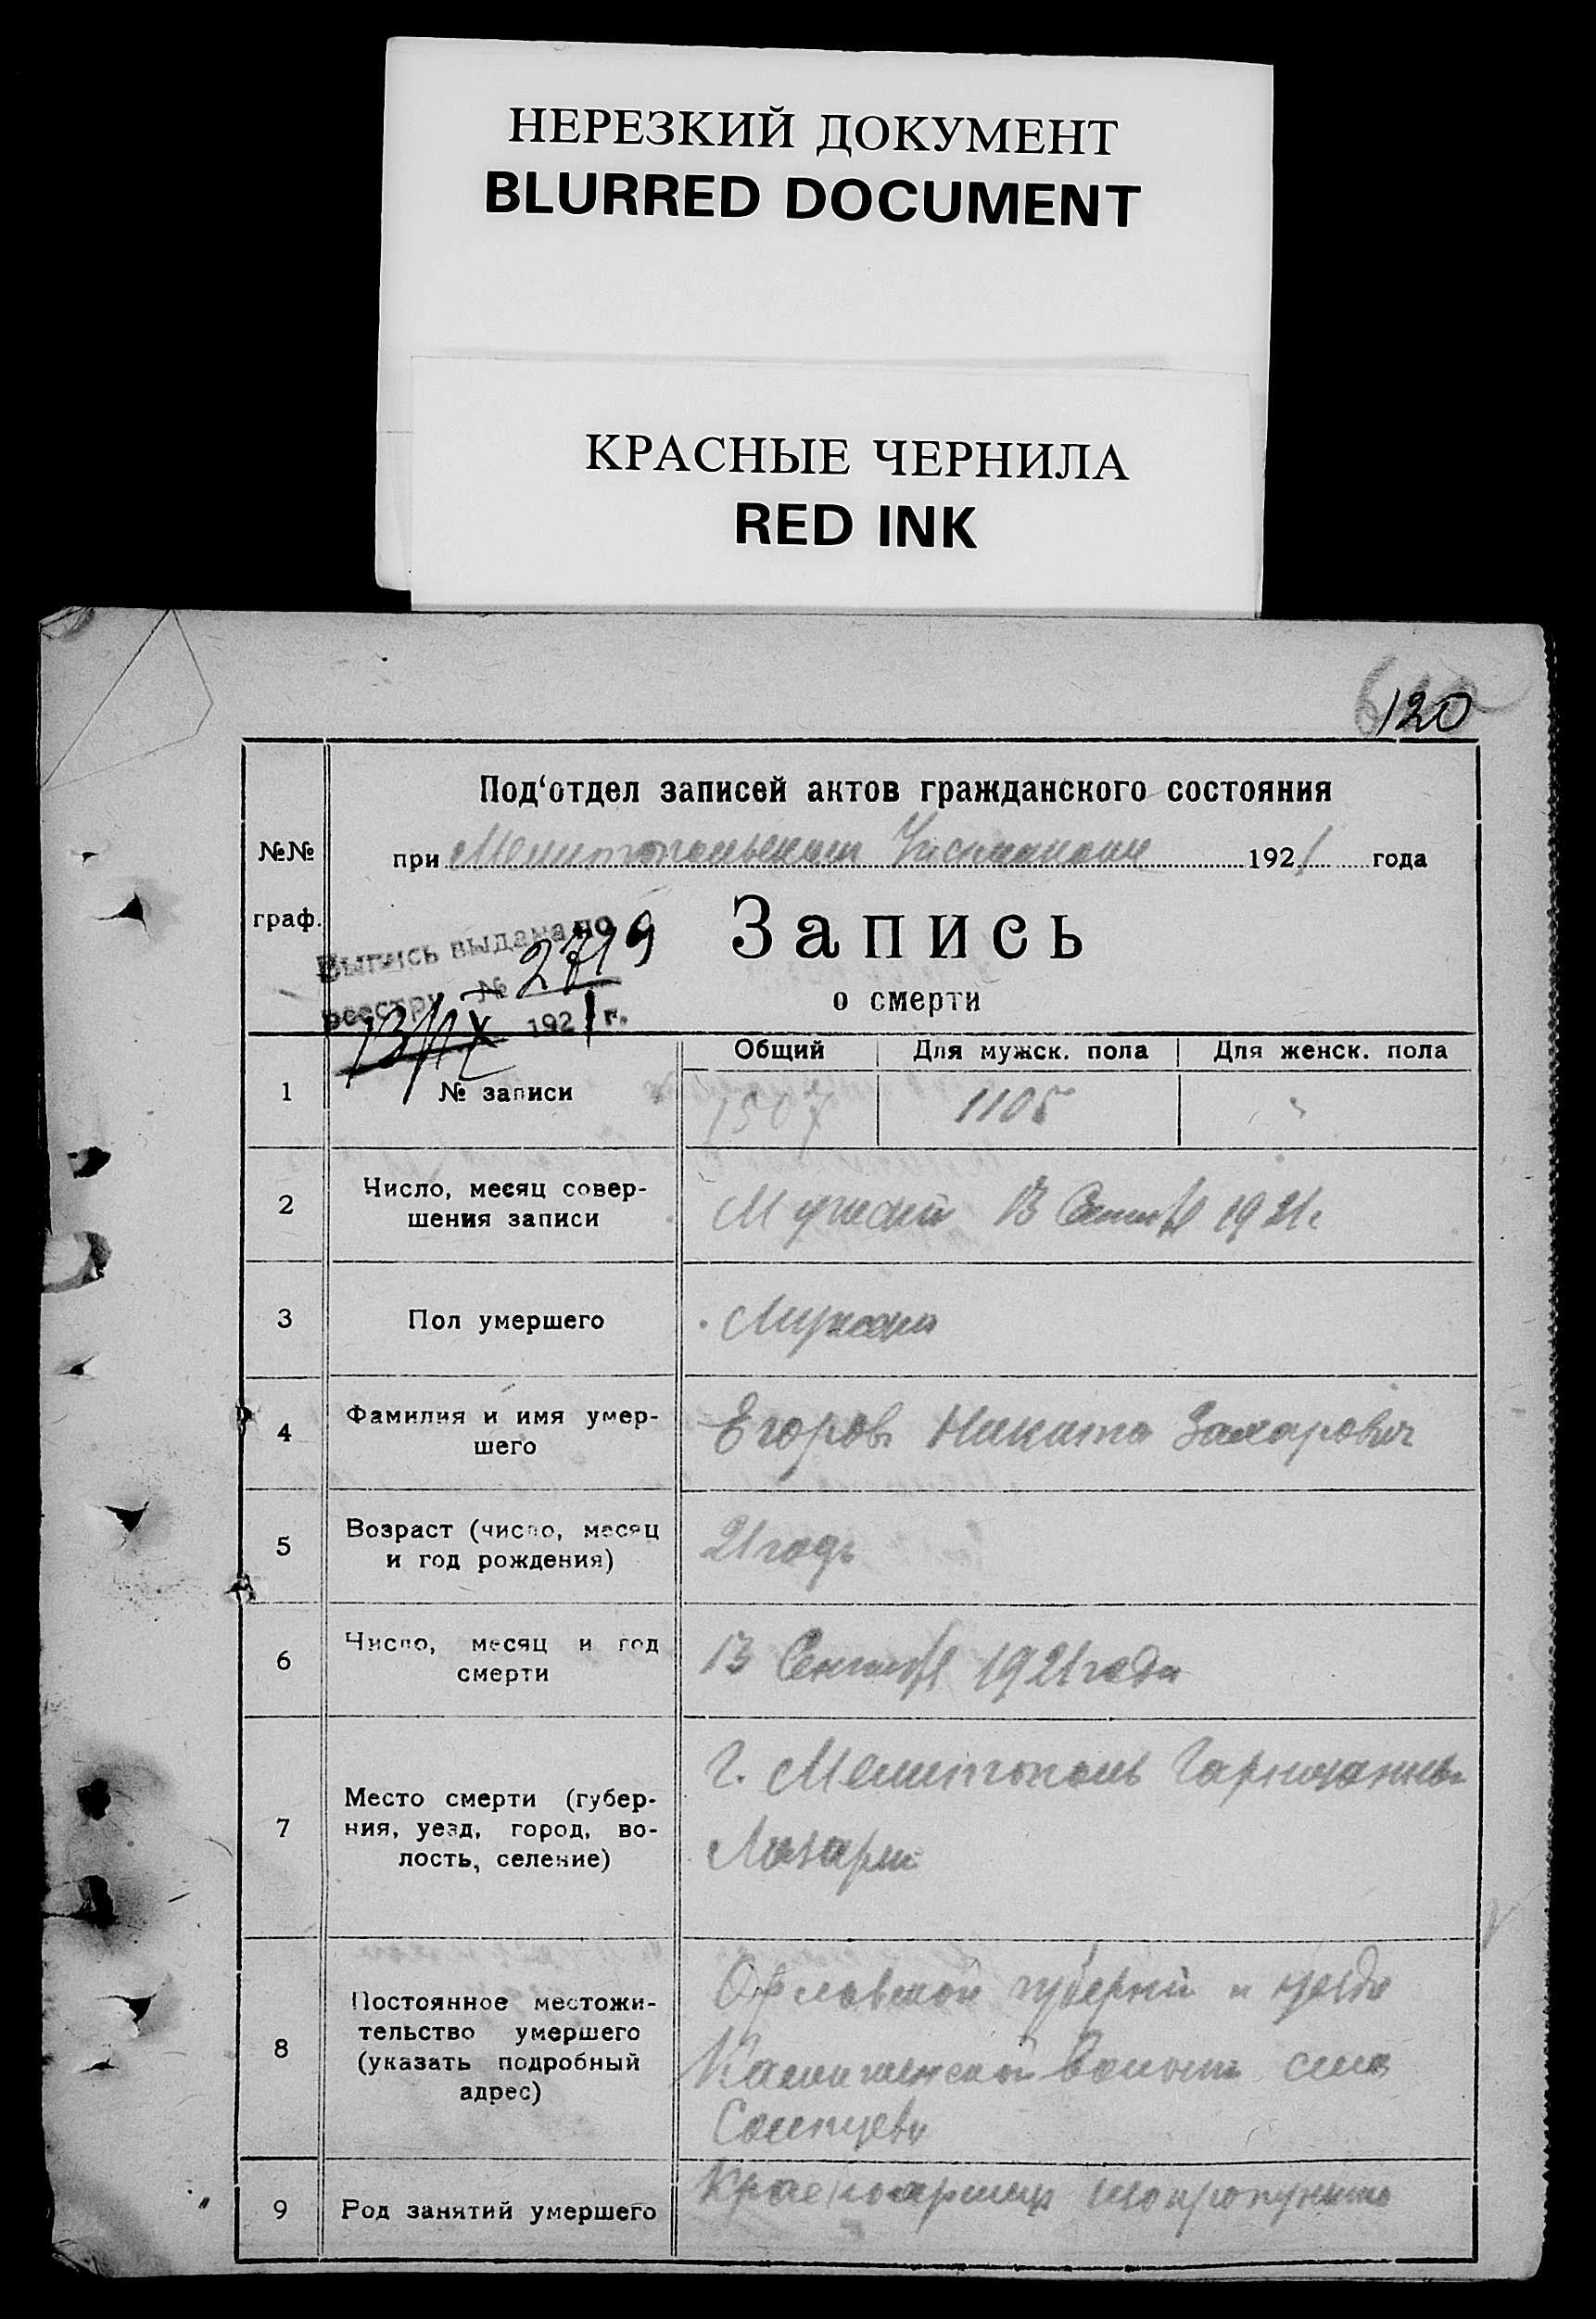 НЕРЕЗКИЙ ДОКУМЕНТ
BLURRED DOCUMENT
КРАСНЫЕ ЧЕРНИЛА
RED INK
120
Под‘отдел записей актов гражданского состояния
№№
граф.
при Мелитопольском 1921 года
Выпись выдана по
реестру № 2719
13/IX 1921 г.
Запись
о смерти
Общий Для мужск. пола Для женск. пола
1 № записи 1507 1105 "
2 Число, месяц совер-
шения записи
Мужской 13 Сентяб 1921 г
3 Пол умершего Мужской
4 Фамилия и имя умер-
шего
Егоров Никита Захарович
5 Возраст (число, месяц
и год рождения)
21 годъ
6 Число, месяц и год
смерти
13 Сентяб 1921 года
7 Место смерти (губер-
ния, уезд, город, во-
лость, селение)
Г. Мелитополь Гарнизонный
Лазарет
8 Постоянное местожи-
тельство умершего
(указать подробный
адрес)
Орловской губернии и уезда
волости село
Солнцево
9 Род занятий умершего Красноармеец